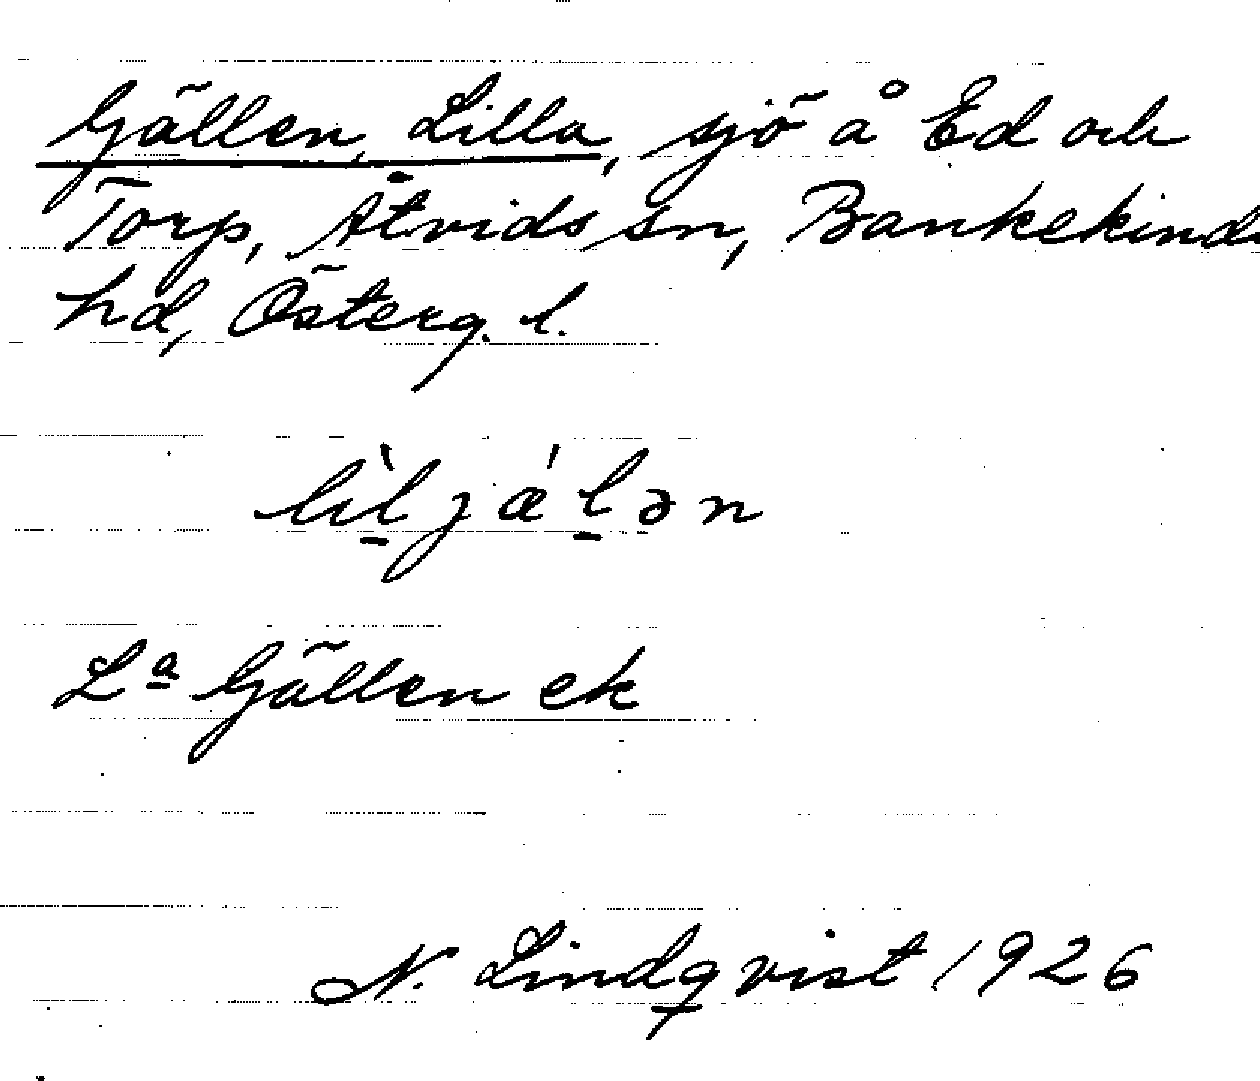 Gällen, Lilla, sjö å Ed och
Torp, Åtvids sn, Bankekinds
hd, Österg. l.
lìl̠jǽl̠ən
Lª Gällen ek
N. Lindqvist 1926